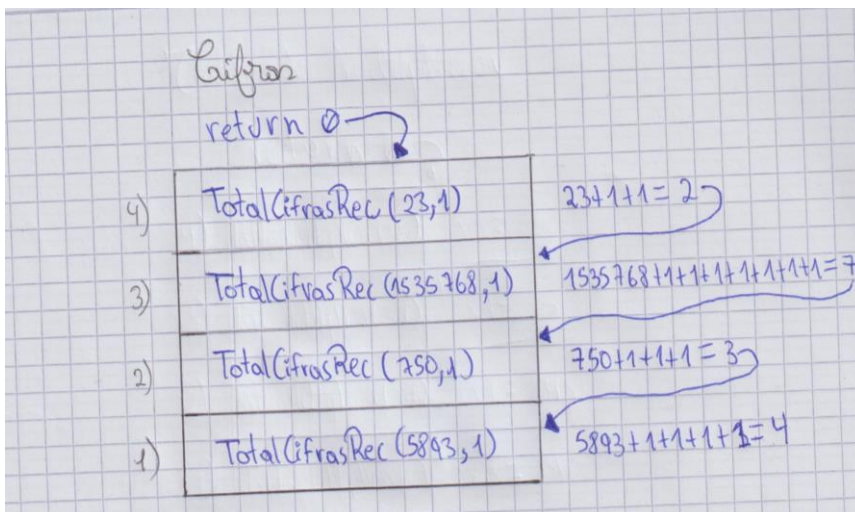 Cifras
return 0
4) TotalCifrasRec (23,1) 23+1+1= 2
3) TotalCifrasRec (1535768,1) 1535768+1+1+1+1+1+1+1=7
2) TotalCifrasRec (750,1) 750+1+1+1=3
1) TotalCifrasRec (5893,1) 5893+1+1+1+1=4